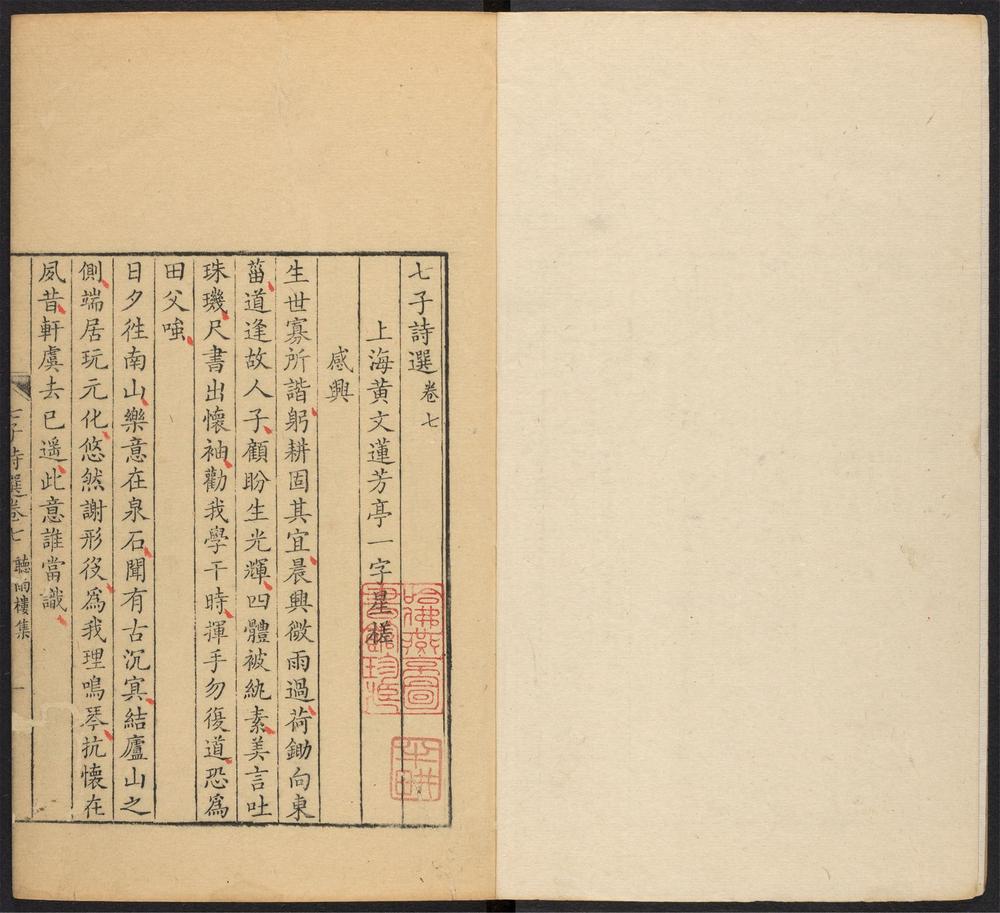 七子詩選卷七
上海黃文蓮芳亭一字星槎
感興
生世寡所諧躬耕固其宜晨興微雨過荷鋤向東
菑道逢故人子顧盼生光輝四體被紈素美言吐
珠璣尺書出懷袖勸我學干時揮手勿復道恐爲
田父嗤
日夕徃南山樂意在泉石聞有古沉冥結廬山之
側端居玩元化悠然謝形役爲我理鳴琴抗懷在
夙昔軒虞去已遥此意誰當識
七子詩選卷七 聽雨樓集 一
哈佛燕京圖書館珍藏